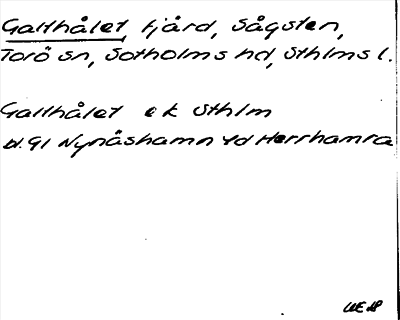 Galthålet, fjärd, Sågsten,
Torö sn, Sotholms hd, Sthlms l.
Galthålet ek Sthlm
bl. 91 Nynäshamn Yd Herrhamra